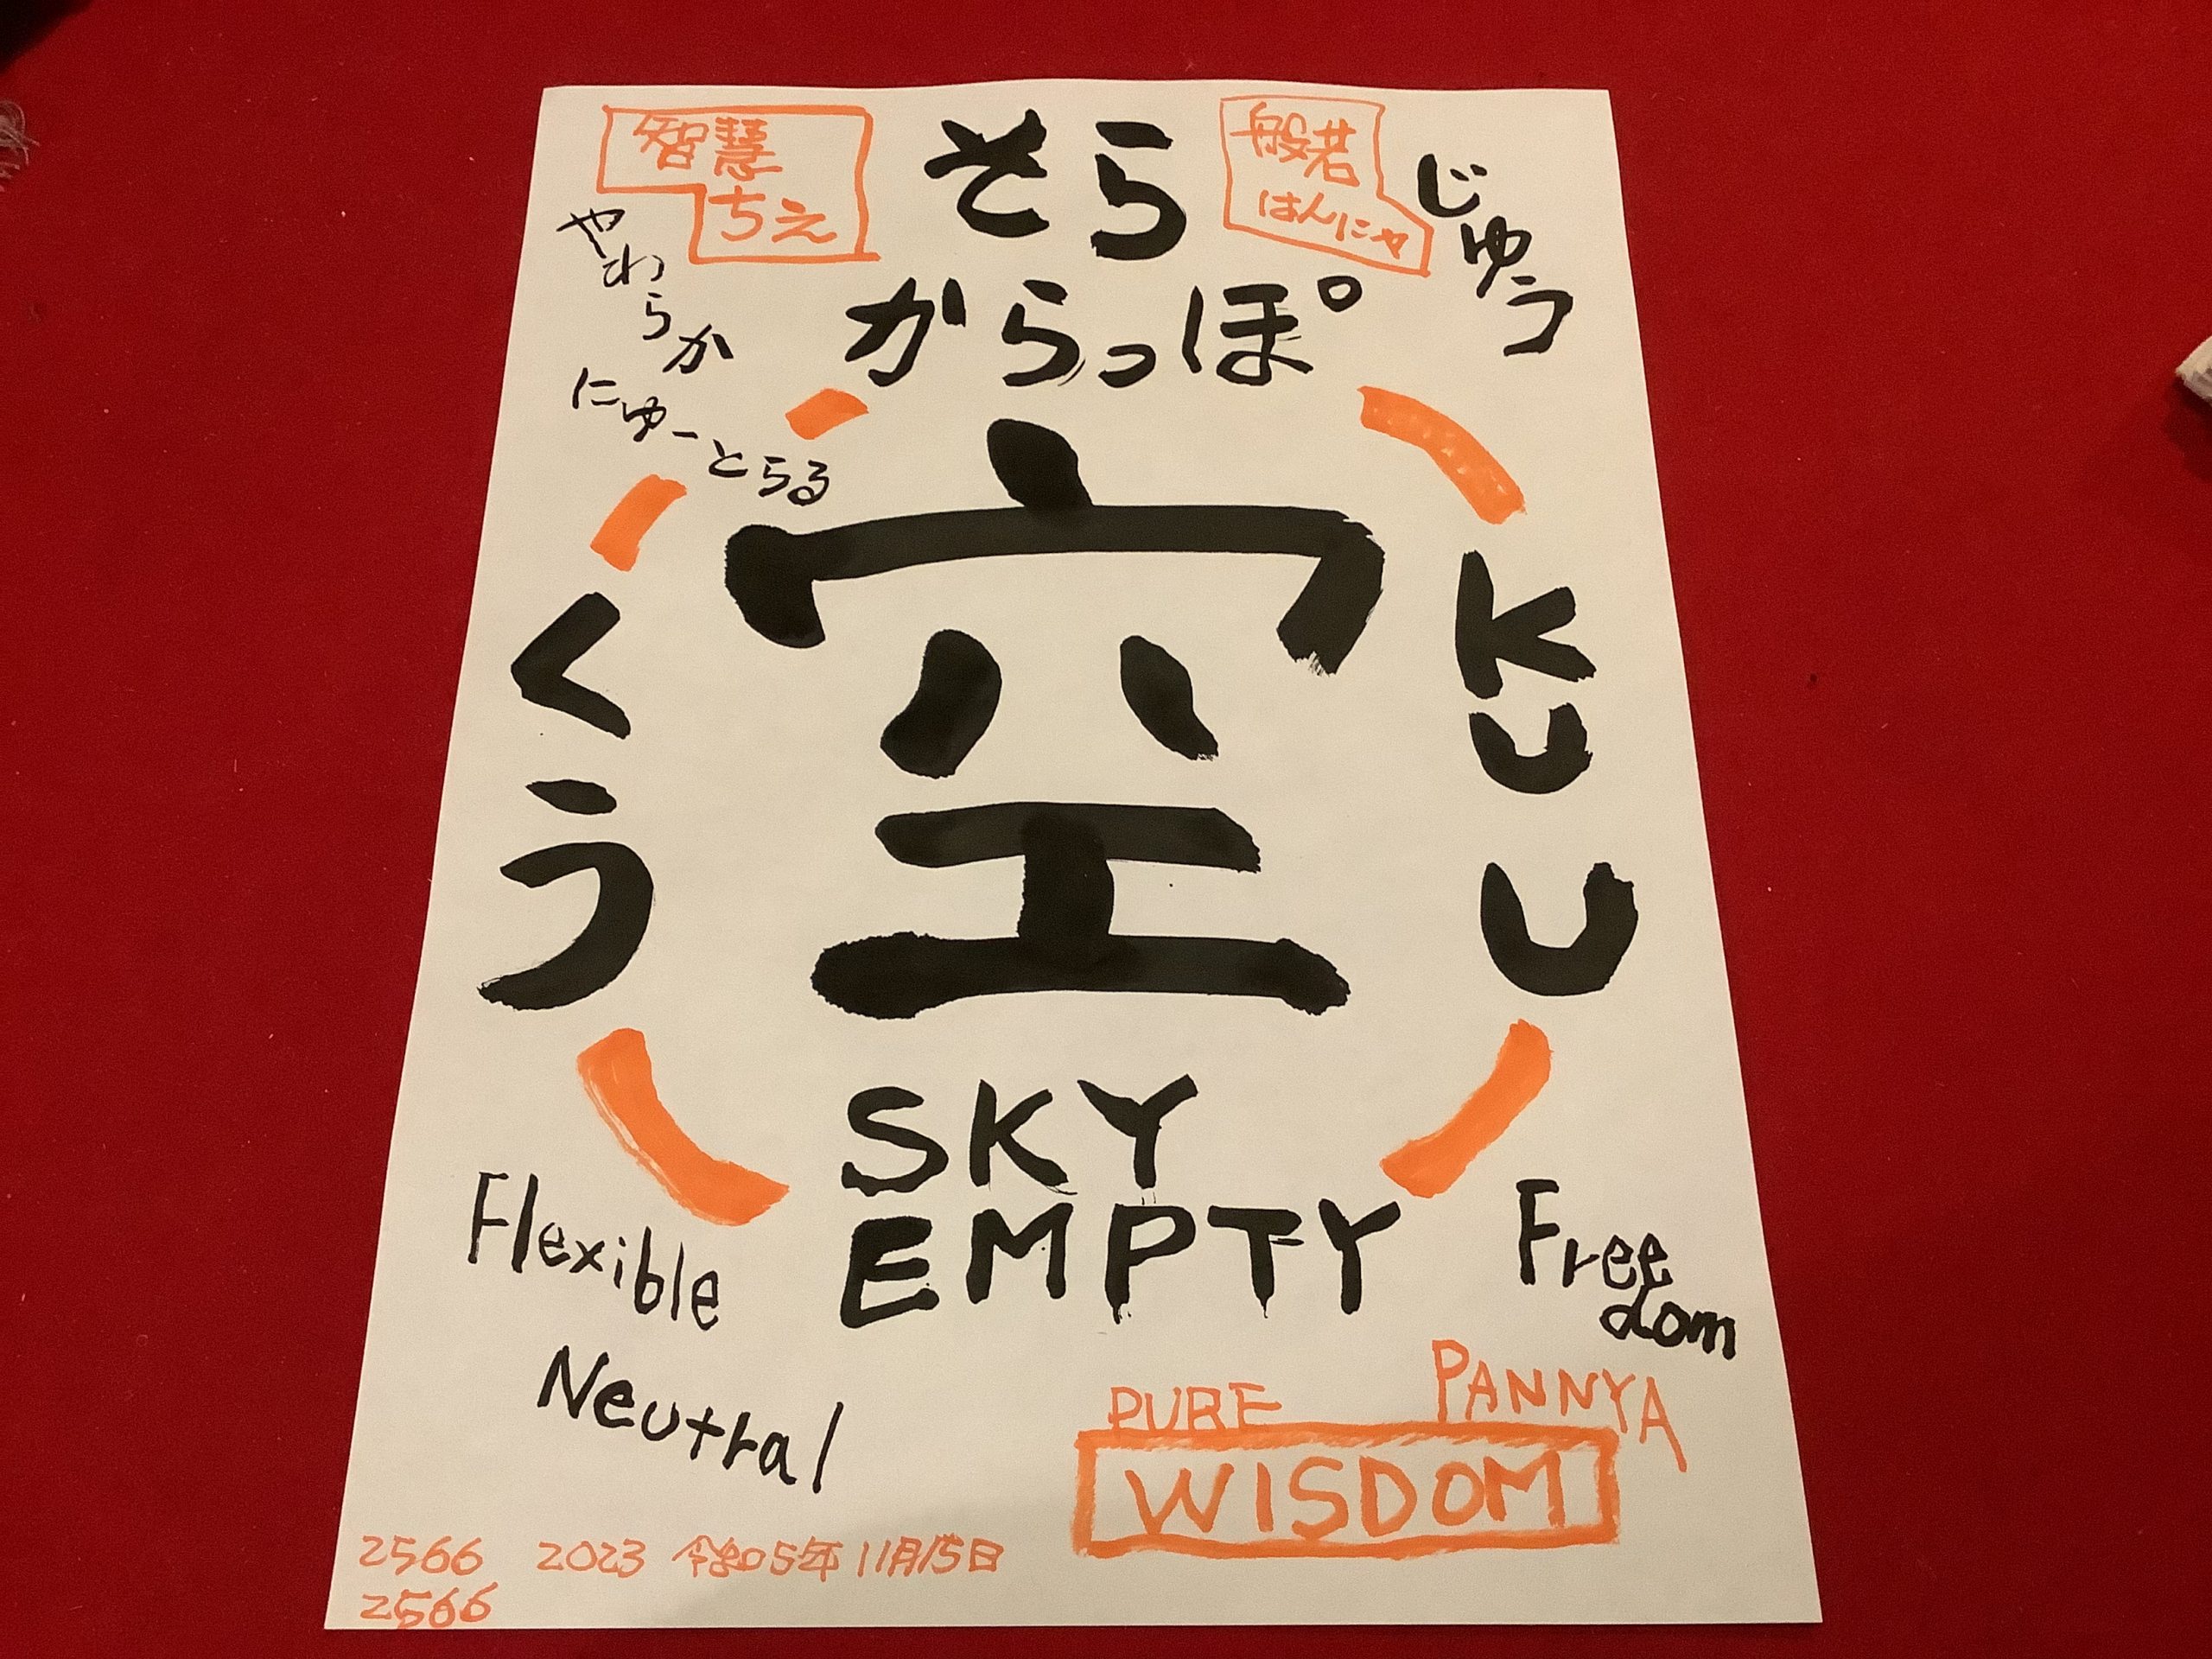 智慧
ちえ
そら
般若
はんにゃ
じゆう
やわらか
からっぽ
にゅーとらる
空
くう
KUU
SKY
EMPTY
Flexible
Neutral
Free
dom
PURE
PANNYA
WISDOM
2566 2023 令和5年11月15日
2566